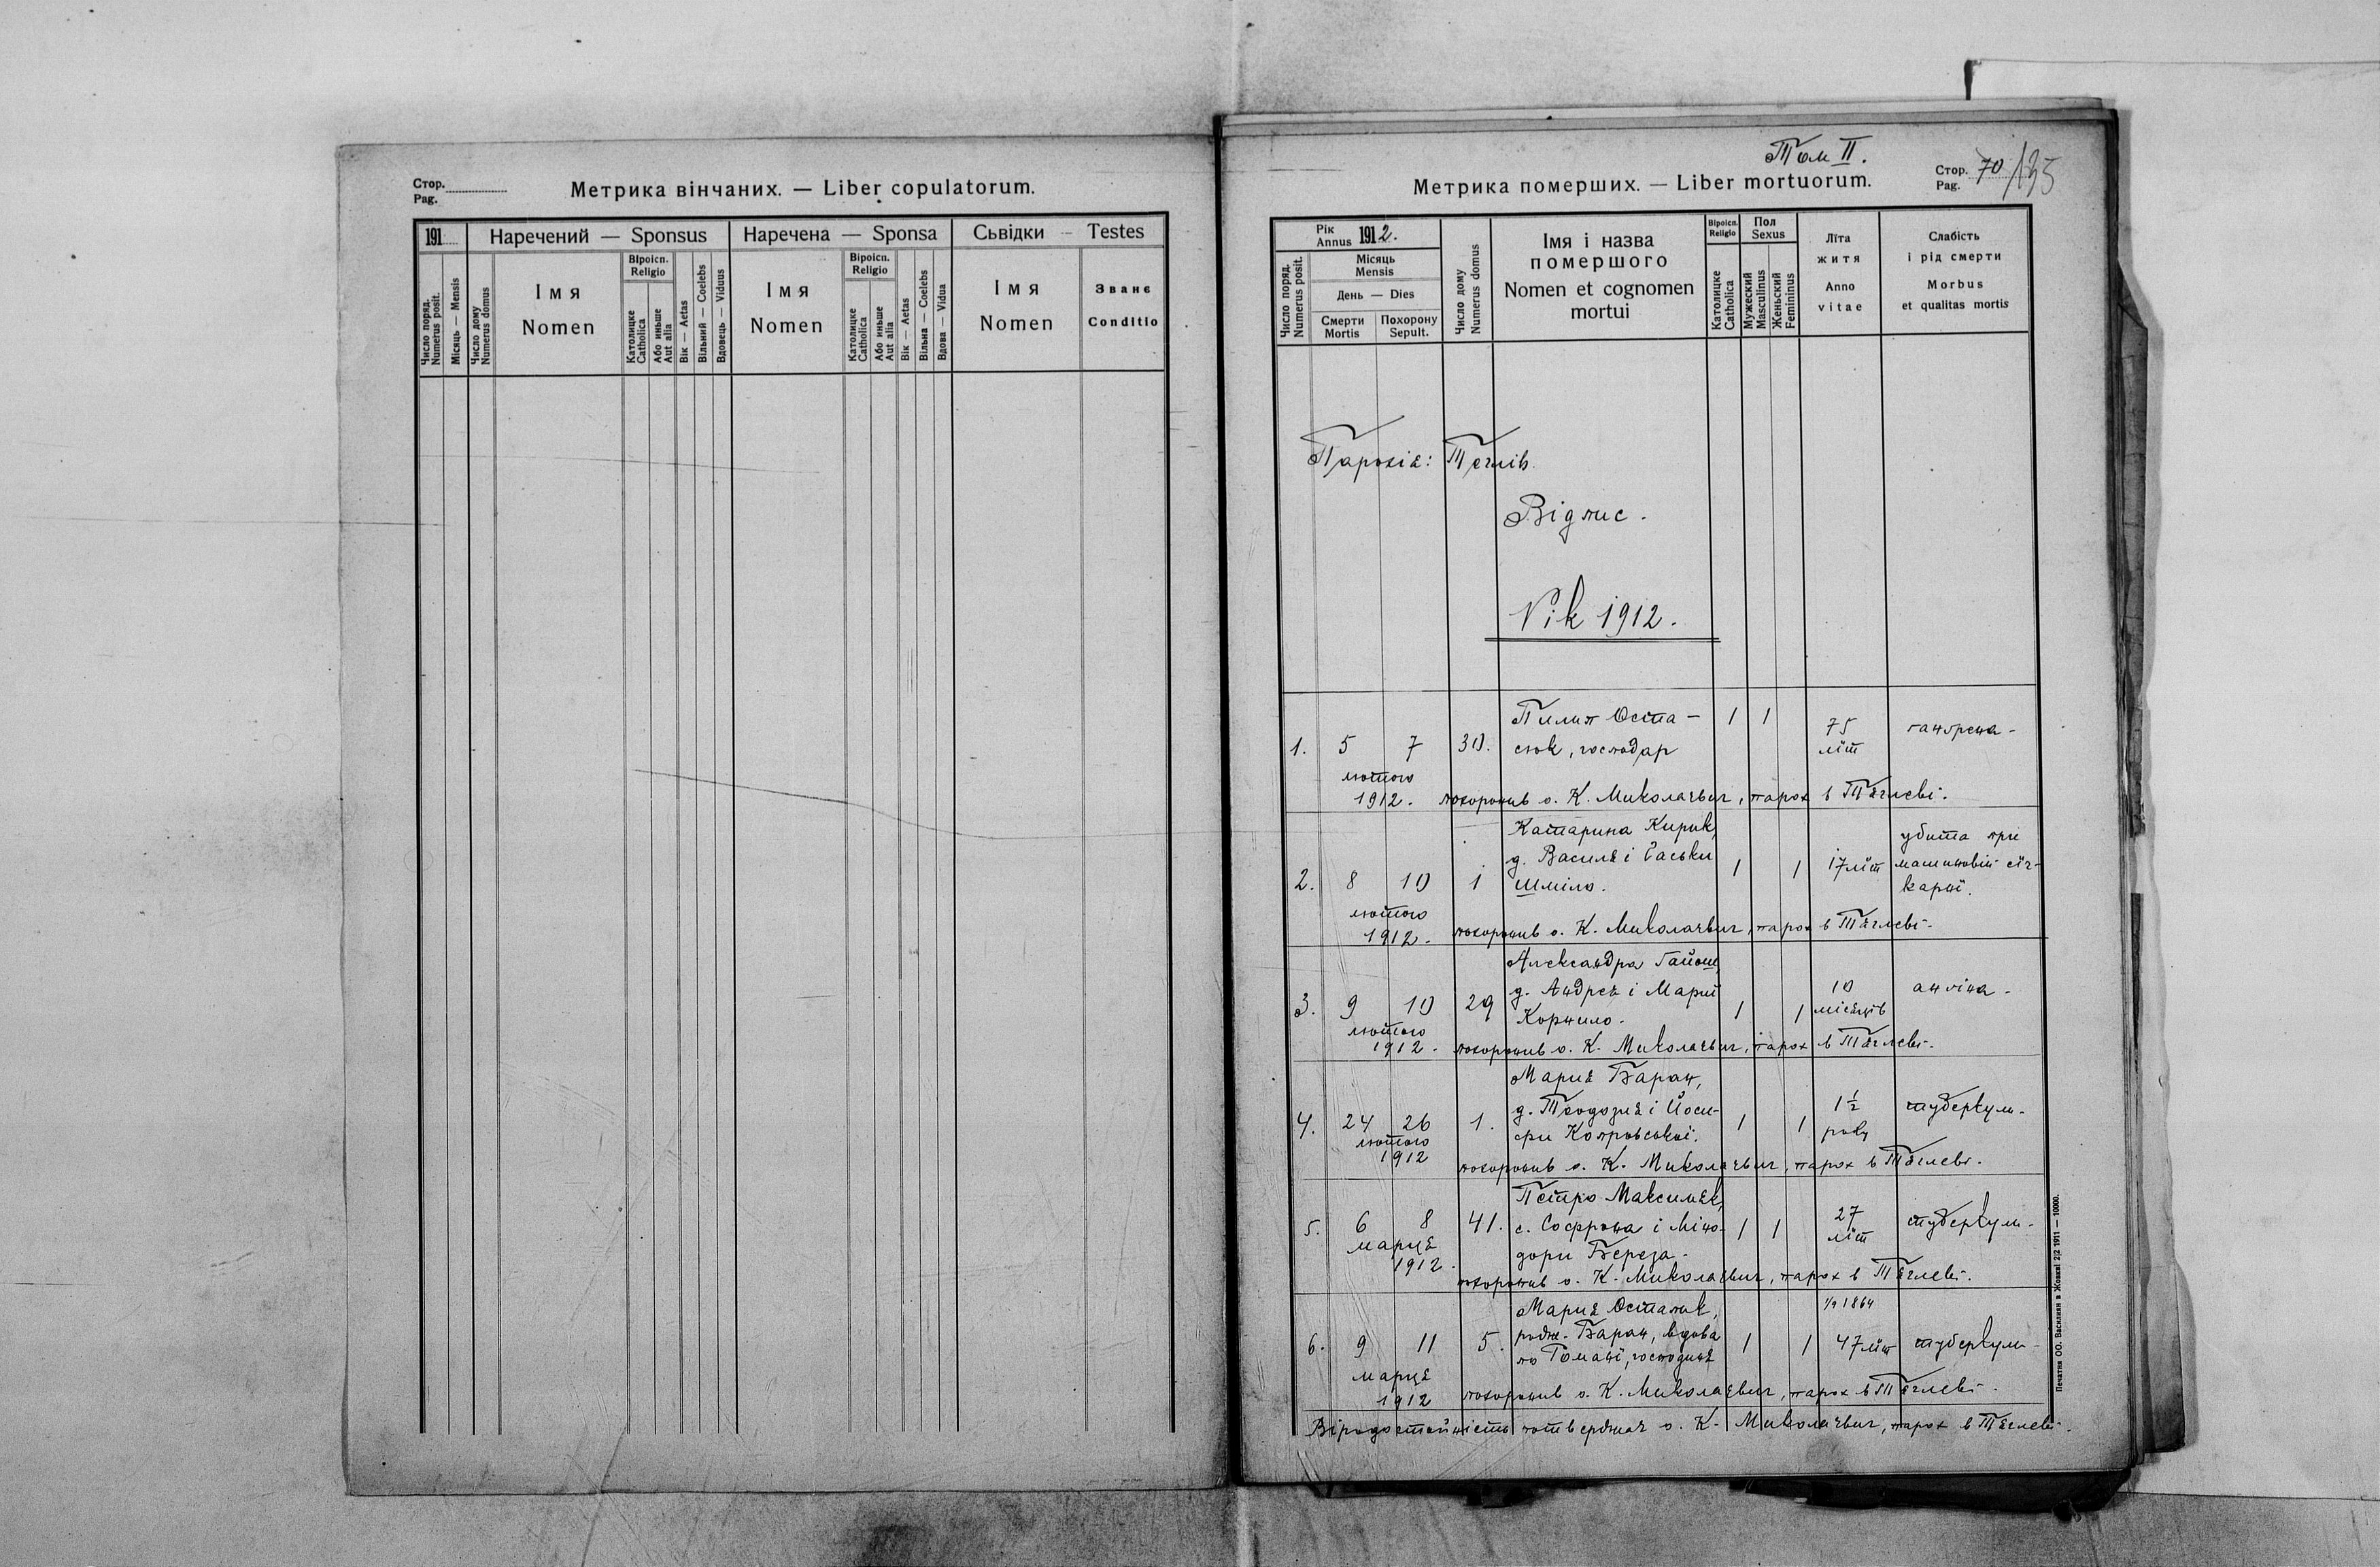 Стор.
Pag.
Метрика вінчаних. — Liber copulatorum.
191
Наречений — Sponsus
Наречена — Sponsa
Сьвідки — Testes
Число поряд.
Numerus posit.
Місяць — Mensis
Число дому
Numerus domus
Імя
Nomen
Віроісп.
Religio
Католицке
Catholica
Або иньше
Aut alia
Вік — Aetas
Вільний — Coelebs
Вдовець — Viduus
Імя
Nomen
Віроісп.
Religio
Католицке
Catholica
Або иньше
Aut alia
Вік — Aetas
Вільна — Coelebs
Вдова — Vidua
Імя
Nomen
Званє
Conditio
Том II.
Метрика померших. — Liber mortuorum.
Стор.
Pag.
70/135
Рік
Annus 1912.
Місяць
Mensis
День — Dies
Число поряд.
Numerus posit.
Смерти
Mortis
Похорону
Sepult.
Число дому
Numerus domus
Імя і назва
помершого
Nomen et cognomen
mortui
Віроісп.
Religio
Католицке
Catholica
Пол
Sexus
Мужеский
Masculinus
Женьский
Femininus
Лїта
житя
Anno
vitae
Слабість
і рід смерти
Morbus
et qualitas mortis
Парохія: Тєглів.
Відпис.
Рік 1912.
Пилип Оста-
1. 5 7 30. сюк, господар 1 1 75 лїт гангрена-
лютого
1912. похоронив о. К. Миколаєвич, парох в Тяглеві.
Катарина Кирик,
д. Василя і Гаськи
2. 8 10 1 Шміло. 1 1 17 лїт убита при
машиновій сїч-
карнї.
лютого
1912. похоронив о. К. Миколаєвич, парох в Тяглеві.
Александра Гайош,
д. Андрея і Марії
3. 9 10 29 Корнило. 1 1 10 місяців ангіна-
лютого
1912. похоронив о. К. Миколаєвич, парох в Тяглеві.
Мария Баран,
д. Теодозия і Йоси-
4. 24 26 1. фи Копровської. 1 1 1½ року туберкул-
лютого
1912 похоронив о. К. Миколаєвич, парох в Тяглеві.
Петро Максимяк,
5. 6 8 41. с. Софрона і Міно-
дори Береза- 1 1 27 лїт туберкул-
марця
1912. похоронив о. К. Миколаєвич, парох в Тяглеві.
Мария Остапюк, 1/9 1864
6. 9 11 5. родж. Баран, вдова 1 1 47 лїт туберкул-
по Романї, господиня
марця
1912 похоронив о. К. Миколаєвич, парох в Тяглеві.
Віродостойність потверджає о. К. Миколаєвич, парох в Тяглеві.
Печатня ОО. Василиян в Жовкві 2|2 1911 — 10000.